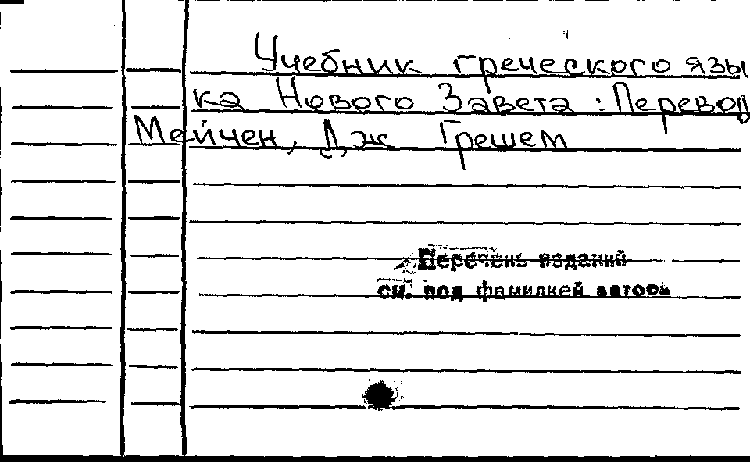 Учебник греческого язы
ка Нового Завета : Перевод
Мейчен, Дж Грешем
Перечень изданий
см. под фамилией автора